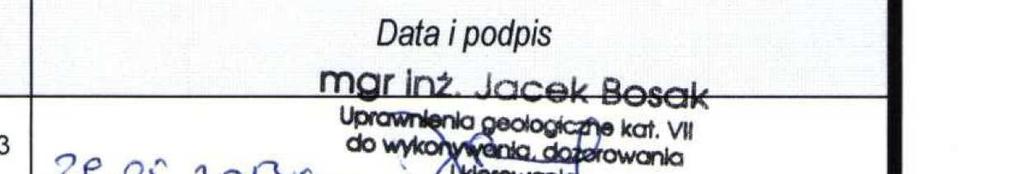 Data i podpis
mgr inż. Jacek Bosak
Uprawnienia geologiczne kat. VII
3
do wykonywania, dozorowania
i kierowania